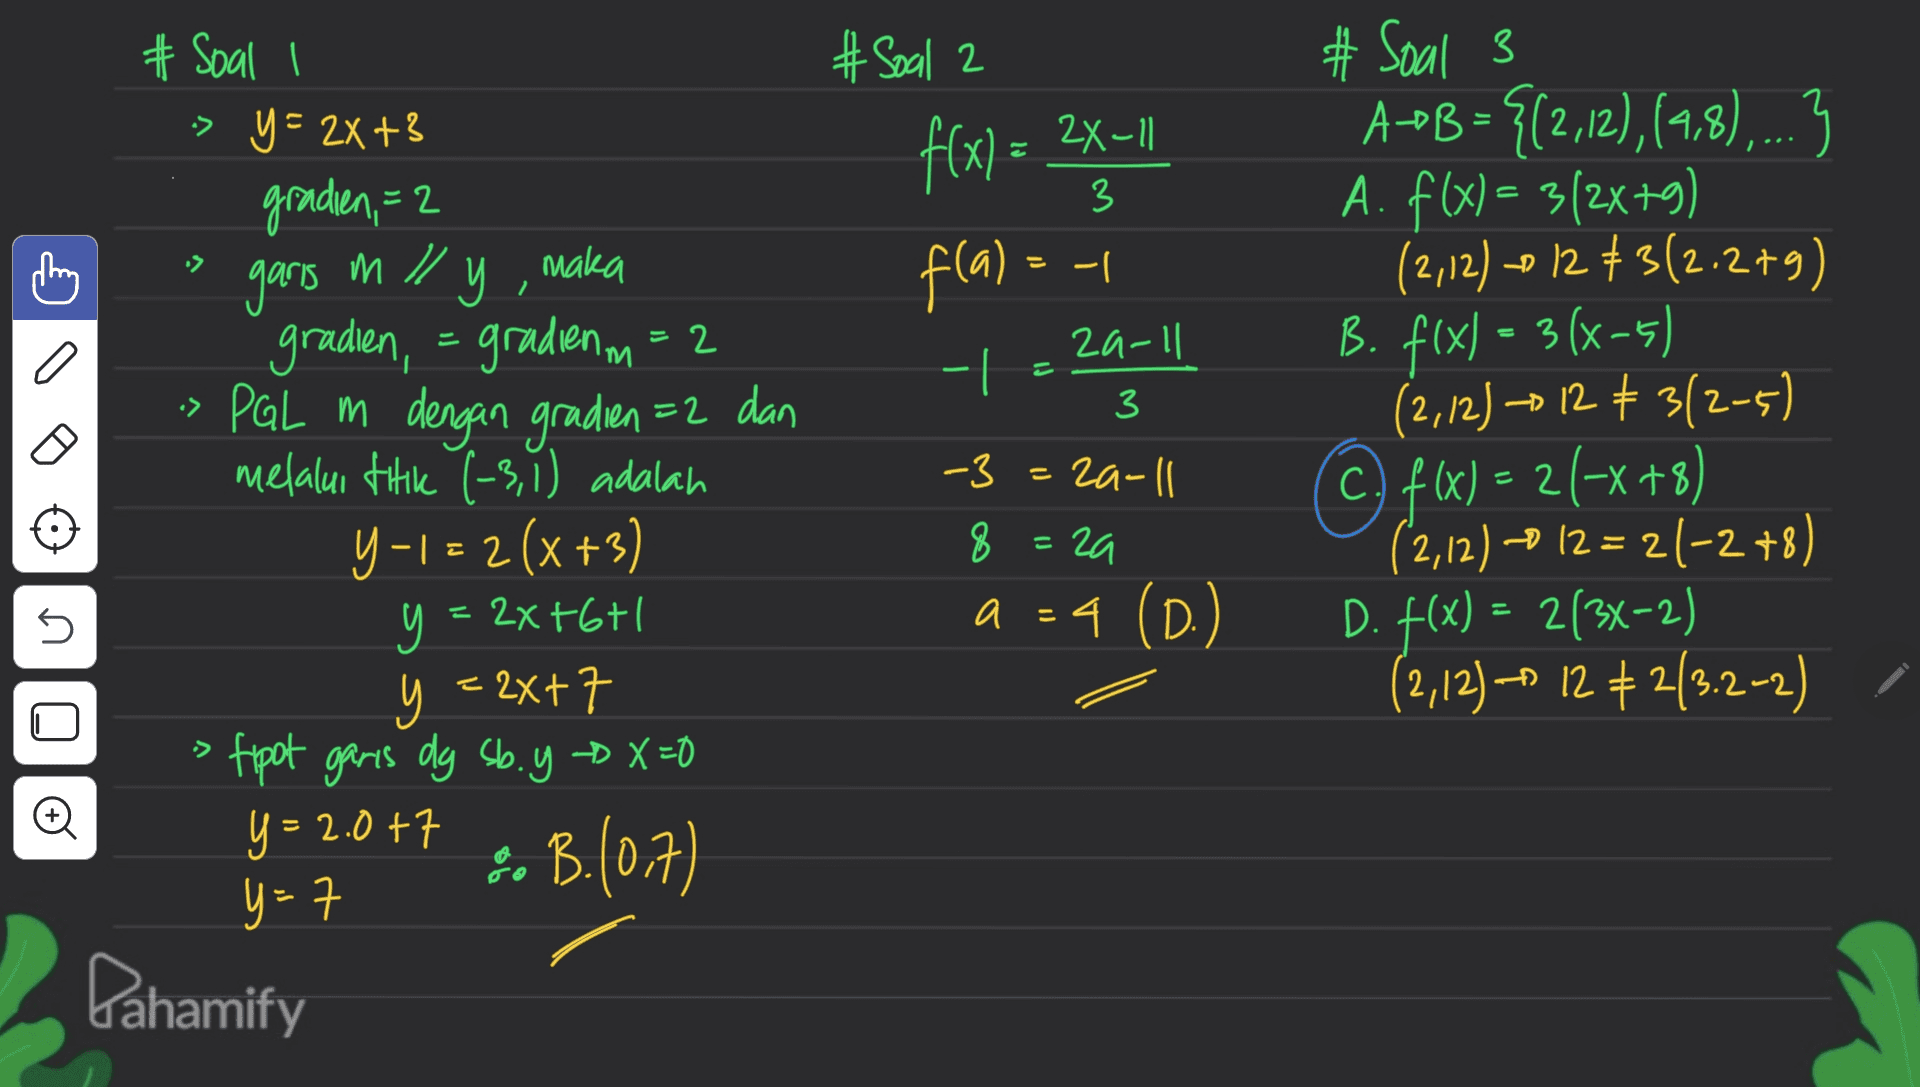 # Soal 1
•> y = 2x + 3
gradien₁ = 2
•> garis m // y , maka
gradien₁ = gradien m = 2
•> PGL m dengan gradien = 2 dan
melalui titik (-3,1) adalah
y - 1 = 2(x + 3)
y = 2x + 6 + 1
y = 2x + 7
•> tipot garis dg sb. y → x = 0
y = 2.0 + 7
y = 7
∴ B. (0,7)
# Soal 2
f(x) = 2x - 11
3
f(a) = -1
-1 = 2a - 11
3
-3 = 2a - 11
8 = 2a
a = 4 (D.)
# Soal 3
A→B = {(2,12), (4,8), ... }
A. f(x) = 3(2x + 9)
(2,12) → 12 ≠ 3(2.2 + 9)
B. f(x) = 3(x - 5)
(2,12) → 12 ≠ 3(2 - 5)
C. f(x) = 2(-x + 8)
(2,12) → 12 = 2(-2 + 8)
D. f(x) = 2(3x - 2)
(2,12) → 12 ≠ 2(3.2 - 2)
Pahamify